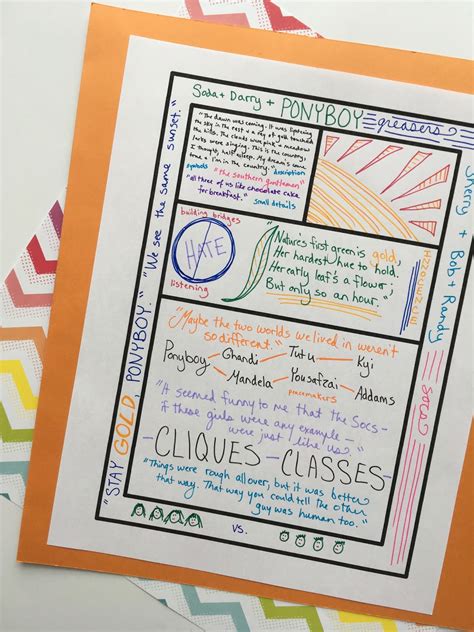 Soda + Darry + PONYBOY
greasers
"The dawn was coming. It was lightening
the sky in the east + a ray of gold touched
the hills. The clouds were pink + meadow
larks were singing. This is the country,
I thought, half asleep. My dream's come
true + I'm in the country."
description
symbols
"the southern gentlemen"
"all three of us like chocolate cake
for breakfast."
small details
building bridges
HATE
listening
Nature's first green is gold,
Her hardest hue to hold.
Her early leaf's a flower;
But only so an hour."
"Maybe the two worlds we lived in weren't
so different."
Ponyboy Ghandi Tutu Kyi
Mandela Yousafzai Addams
peacemakers
"It seemed funny to me that the Socs –
if these girls were any example –
were just like us."
CLIQUES – CLASSES
"Things were rough all over, but it was better
that way. That way you could tell the other
guy was human too."
vs.
"STAY GOLD PONYBOY." "We see the same sunset."
Cherry + Bob + Randy
SOCS